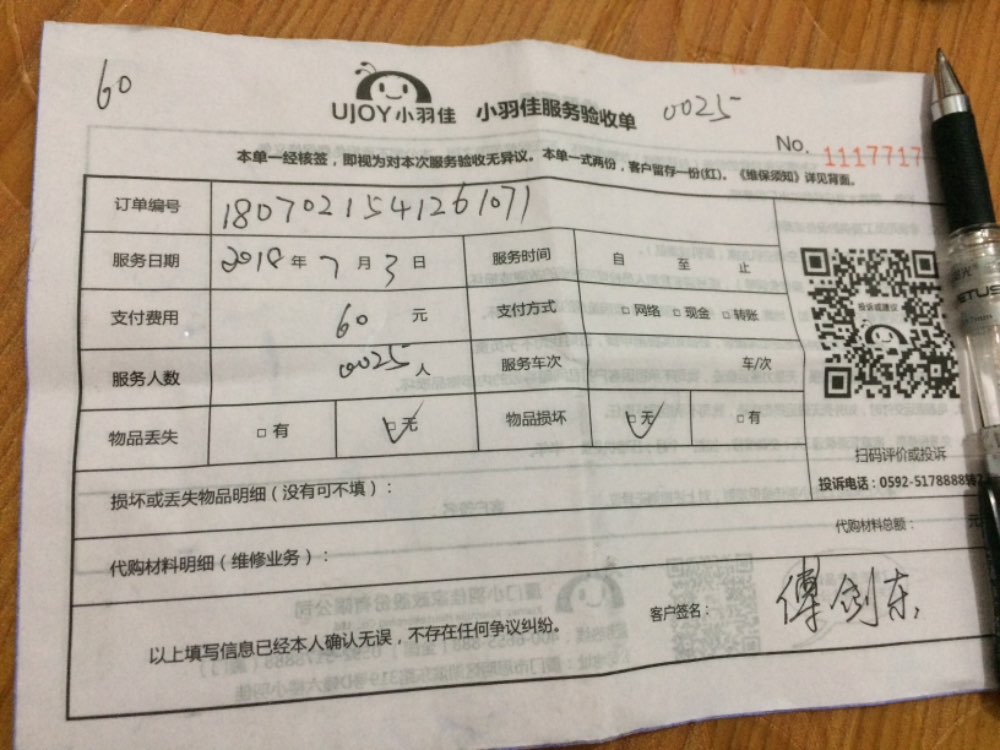 60
UJOY小羽佳 小羽佳服务验收单 0025
No. 1117717
本单一经核签，即视为对本次服务验收无异议。本单一式两份，客户留存一份(红)。《维保须知》详见背面。
订单编号 18070215412261071
服务日期 2018年7月3日 服务时间 自 至 止
支付费用 60 元 支付方式 □网络 □现金 □转账
服务人数 0025人 服务车次 车/次
投诉或建议
物品丢失 □有 □无 物品损坏 □无 □有
扫码评价或投诉
损坏或丢失物品明细（没有可不填）：
投诉电话：0592-5178888转
代购材料总额： 元
代购材料明细（维修业务）：
以上填写信息已经本人确认无误，不存在任何争议纠纷。
客户签名： 傅剑东